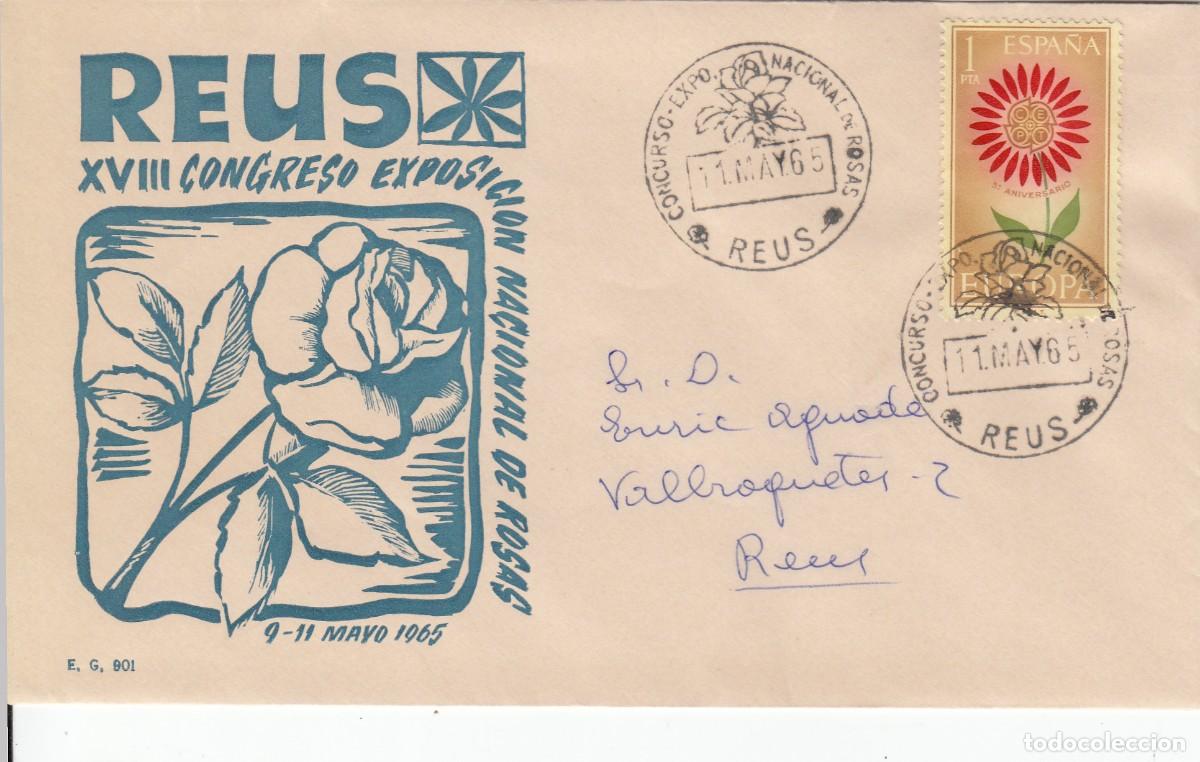 REUS
XVIII CONGRESO EXPOSICION NACIONAL DE ROSAS
9-11 MAYO 1965
E. G. 901
CONCURSO-EXPO. NACIONAL DE ROSAS
11.MAY.65
REUS
1 PTA ESPAÑA
CEPT
5º ANIVERSARIO
EUROPA
CONCURSO-EXPO. NACIONAL DE ROSAS
11.MAY.65
REUS
Sr. D.
Enric Aguade
Vallroquetes - 2
Reus
todocoleccion